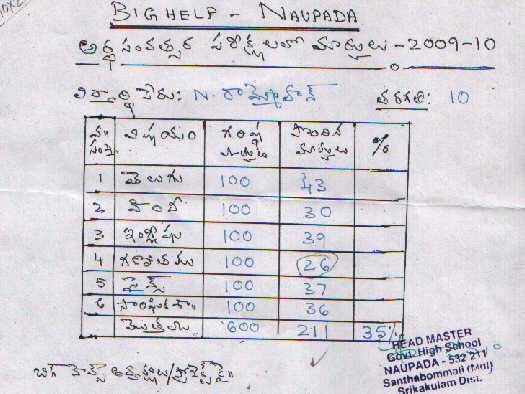 BIG HELP - NAUPADA
అర్థ సంవత్సర పరీక్షలలో మార్కులు - 2009-10
విద్యార్థి పేరు: N. రామ్మోహన్ తరగతి: 10
విషయం గరిష్ఠ మార్కులు పొందిన మార్కులు %
1 తెలుగు 100 43
2 హిందీ 100 30
3 ఇంగ్లీషు 100 39
4 గణితము 100 26
5 సైన్స్ 100 37
6 100 36
మొత్తము 600 211 35%
HEAD MASTER
Govt. High School
NAUPADA - 532 211
Santhabommali (Mdl)
Srikakulam Dist.